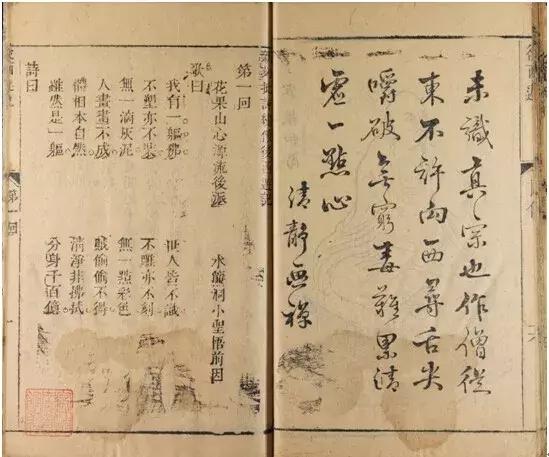 後西遊
未識真宗也作僧從
東不許向西尋舌尖
嚼破無窮毒難累清
虛一點心
清静無禪
新刻批評繡像後西遊記
第一回
花果山心源流後派　水簾洞小聖悟前因
歌曰
我有一軀佛　世人皆不識
不塑亦不裝　不雕亦不刻
無一滴灰泥　無一點彩色
人畫畫不成　賊偷偷不得
體相本自然　清淨非拂拭
雖然是一軀　分身千百億
詩曰
第一回